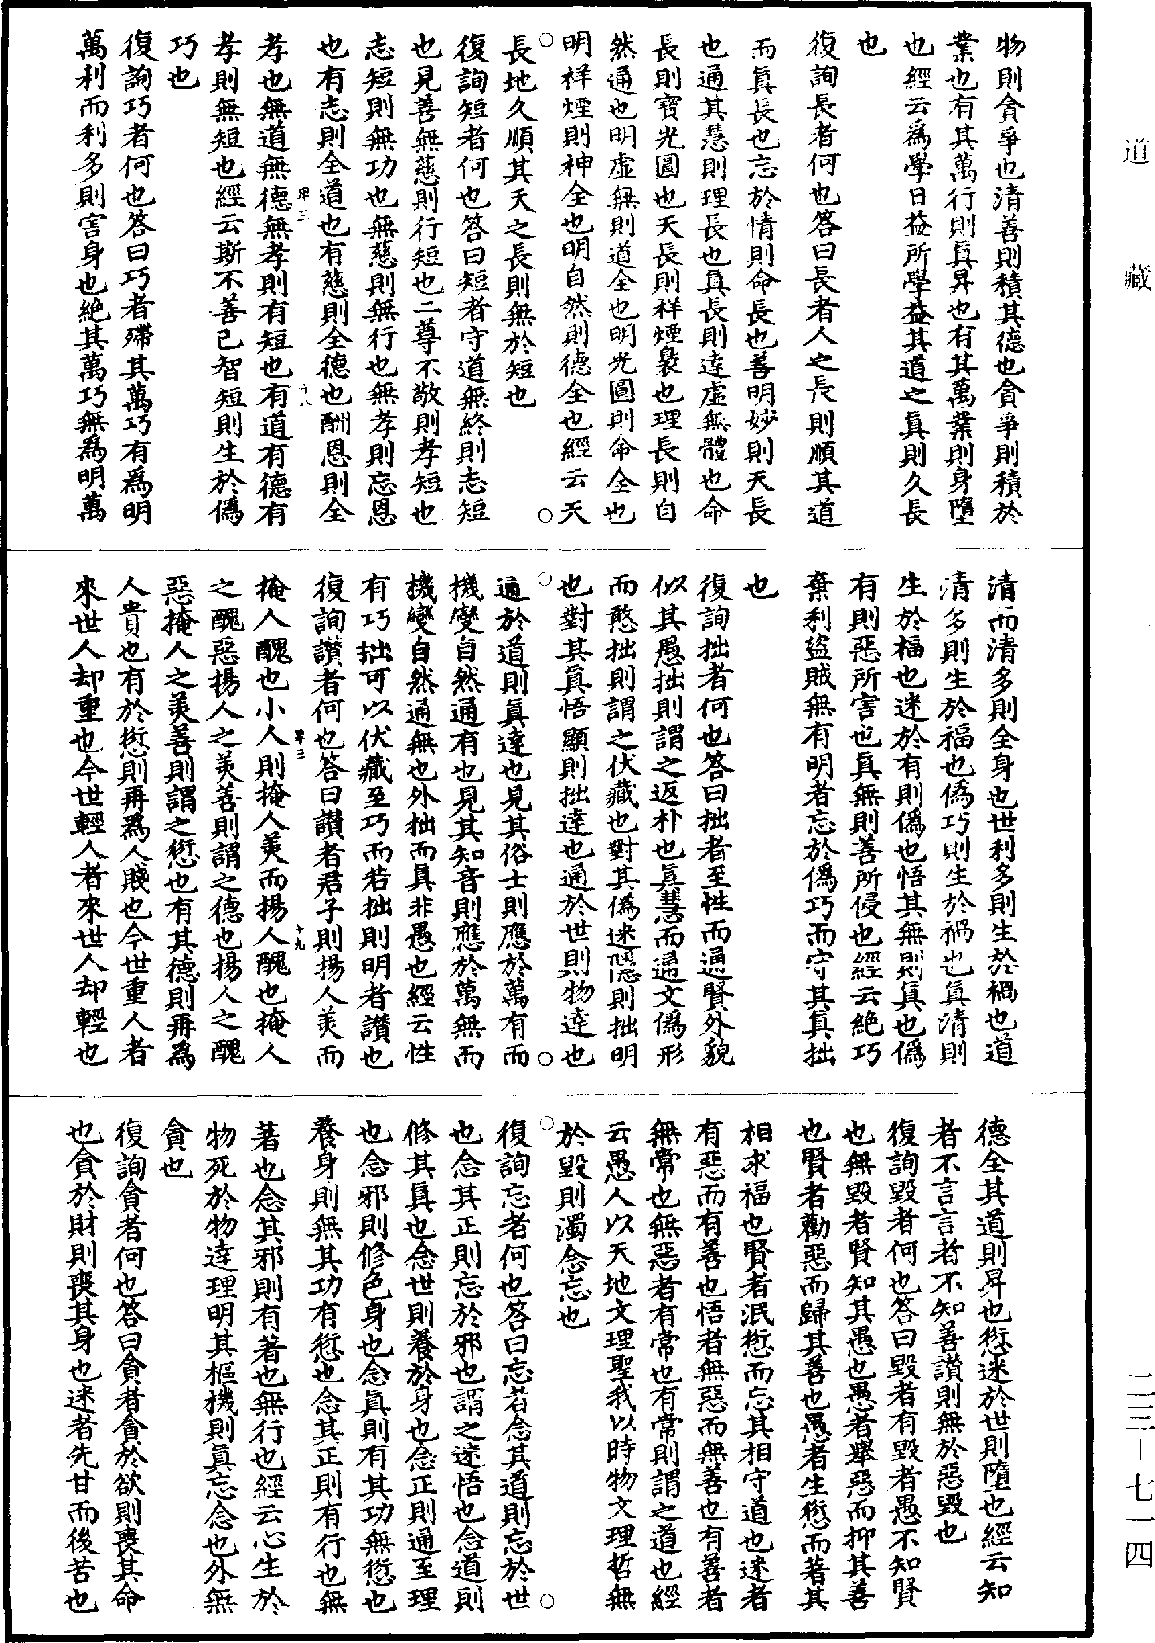 道藏
二三—七一四
物則貪爭也清善則積其德也貪爭則積於
業也有其萬行則眞昇也有其萬業則身墮
也經云爲學日益所學益其道之眞則久長
也
復詢長者何也答曰長者人之長則順其道
而眞長也忘於情則命長也善明妙則天長
也通其慧則理長也眞長則達虛無體也命
長則寶光圓也天長則祥煙裊也理長則自
然通也明虛無則道全也明光圓則命全也
明祥煙則神全也明自然則德全也經云天
長地久順其天之長則無於短也
復詢短者何也答曰短者守道無終則志短
也見善無慈則行短也二尊不敬則孝短也
志短則無功也無慈則無行也無孝則忘恩
也有志則全道也有慈則全德也酬恩則全
孝也無道無德無孝則有短也有道有德有
孝則無短也經云斯不善已智短則生於僞
巧也
復詢巧者何也答曰巧者殢其萬巧有爲明
萬利而利多則害身也絶其萬巧無爲明萬
清而清多則全身也世利多則生於禍也道
清多則生於福也僞巧則生於禍也眞清則
生於福也迷於有則僞也悟其無則眞也僞
有則惡所害也眞無則善所侵也經云絶巧
棄利盜賊無有明者忘於僞巧而守其眞拙
也
復詢拙者何也答曰拙者至性而通賢外貌
似其愚拙則謂之返朴也眞慧而通文僞形
而憨拙則謂之伏藏也對其僞迷隱則拙明
也對其眞悟顯則拙達也通於世則物達也
通於道則眞達也見其俗士則應於萬有而
機變自然通有也見其知音則應於萬無而
機變自然通無也外拙而眞非愚也經云性
有巧拙可以伏藏至巧而若拙則明者讚也
復詢讚者何也答曰讚者君子則揚人美而
掩人醜也小人則掩人美而揚人醜也掩人
之醜惡揚人之美善則謂之德也揚人之醜
惡掩人之美善則謂之愆也有其德則再爲
人貴也有於愆則再爲人賤也今世重人者
來世人却重也今世輕人者來世人却輕也
德全其道則昇也愆迷於世則墮也經云知
者不言言者不知善讚則無於惡毀也
復詢毀者何也答曰毀者有毀者愚不知賢
也無毀者賢知其愚也愚者舉惡而抑其善
也賢者勸惡而歸其善也愚者生愆而著其
相求福也賢者泯愆而忘其相守道也迷者
有惡而有善也悟者無惡而無善也有善者
無常也無惡者有常也有常則謂之道也經
云愚人以天地文理聖我以時物文理哲無
於毀則濁念忘也
復詢忘者何也答曰忘者念其道則忘於世
也念其正則忘於邪也謂之迷悟也念道則
修其眞也念世則養於身也念正則通至理
也念邪則修色身也念眞則有其功無愆也
養身則無其功有愆也念其正則有行也無
著也念其邪則有著也無行也經云心生於
物死於物達理明其樞機則眞忘念也外無
貪也
復詢貪者何也答曰貪者貪於欲則喪其命
也貪於財則喪其身也迷者先甘而後苦也